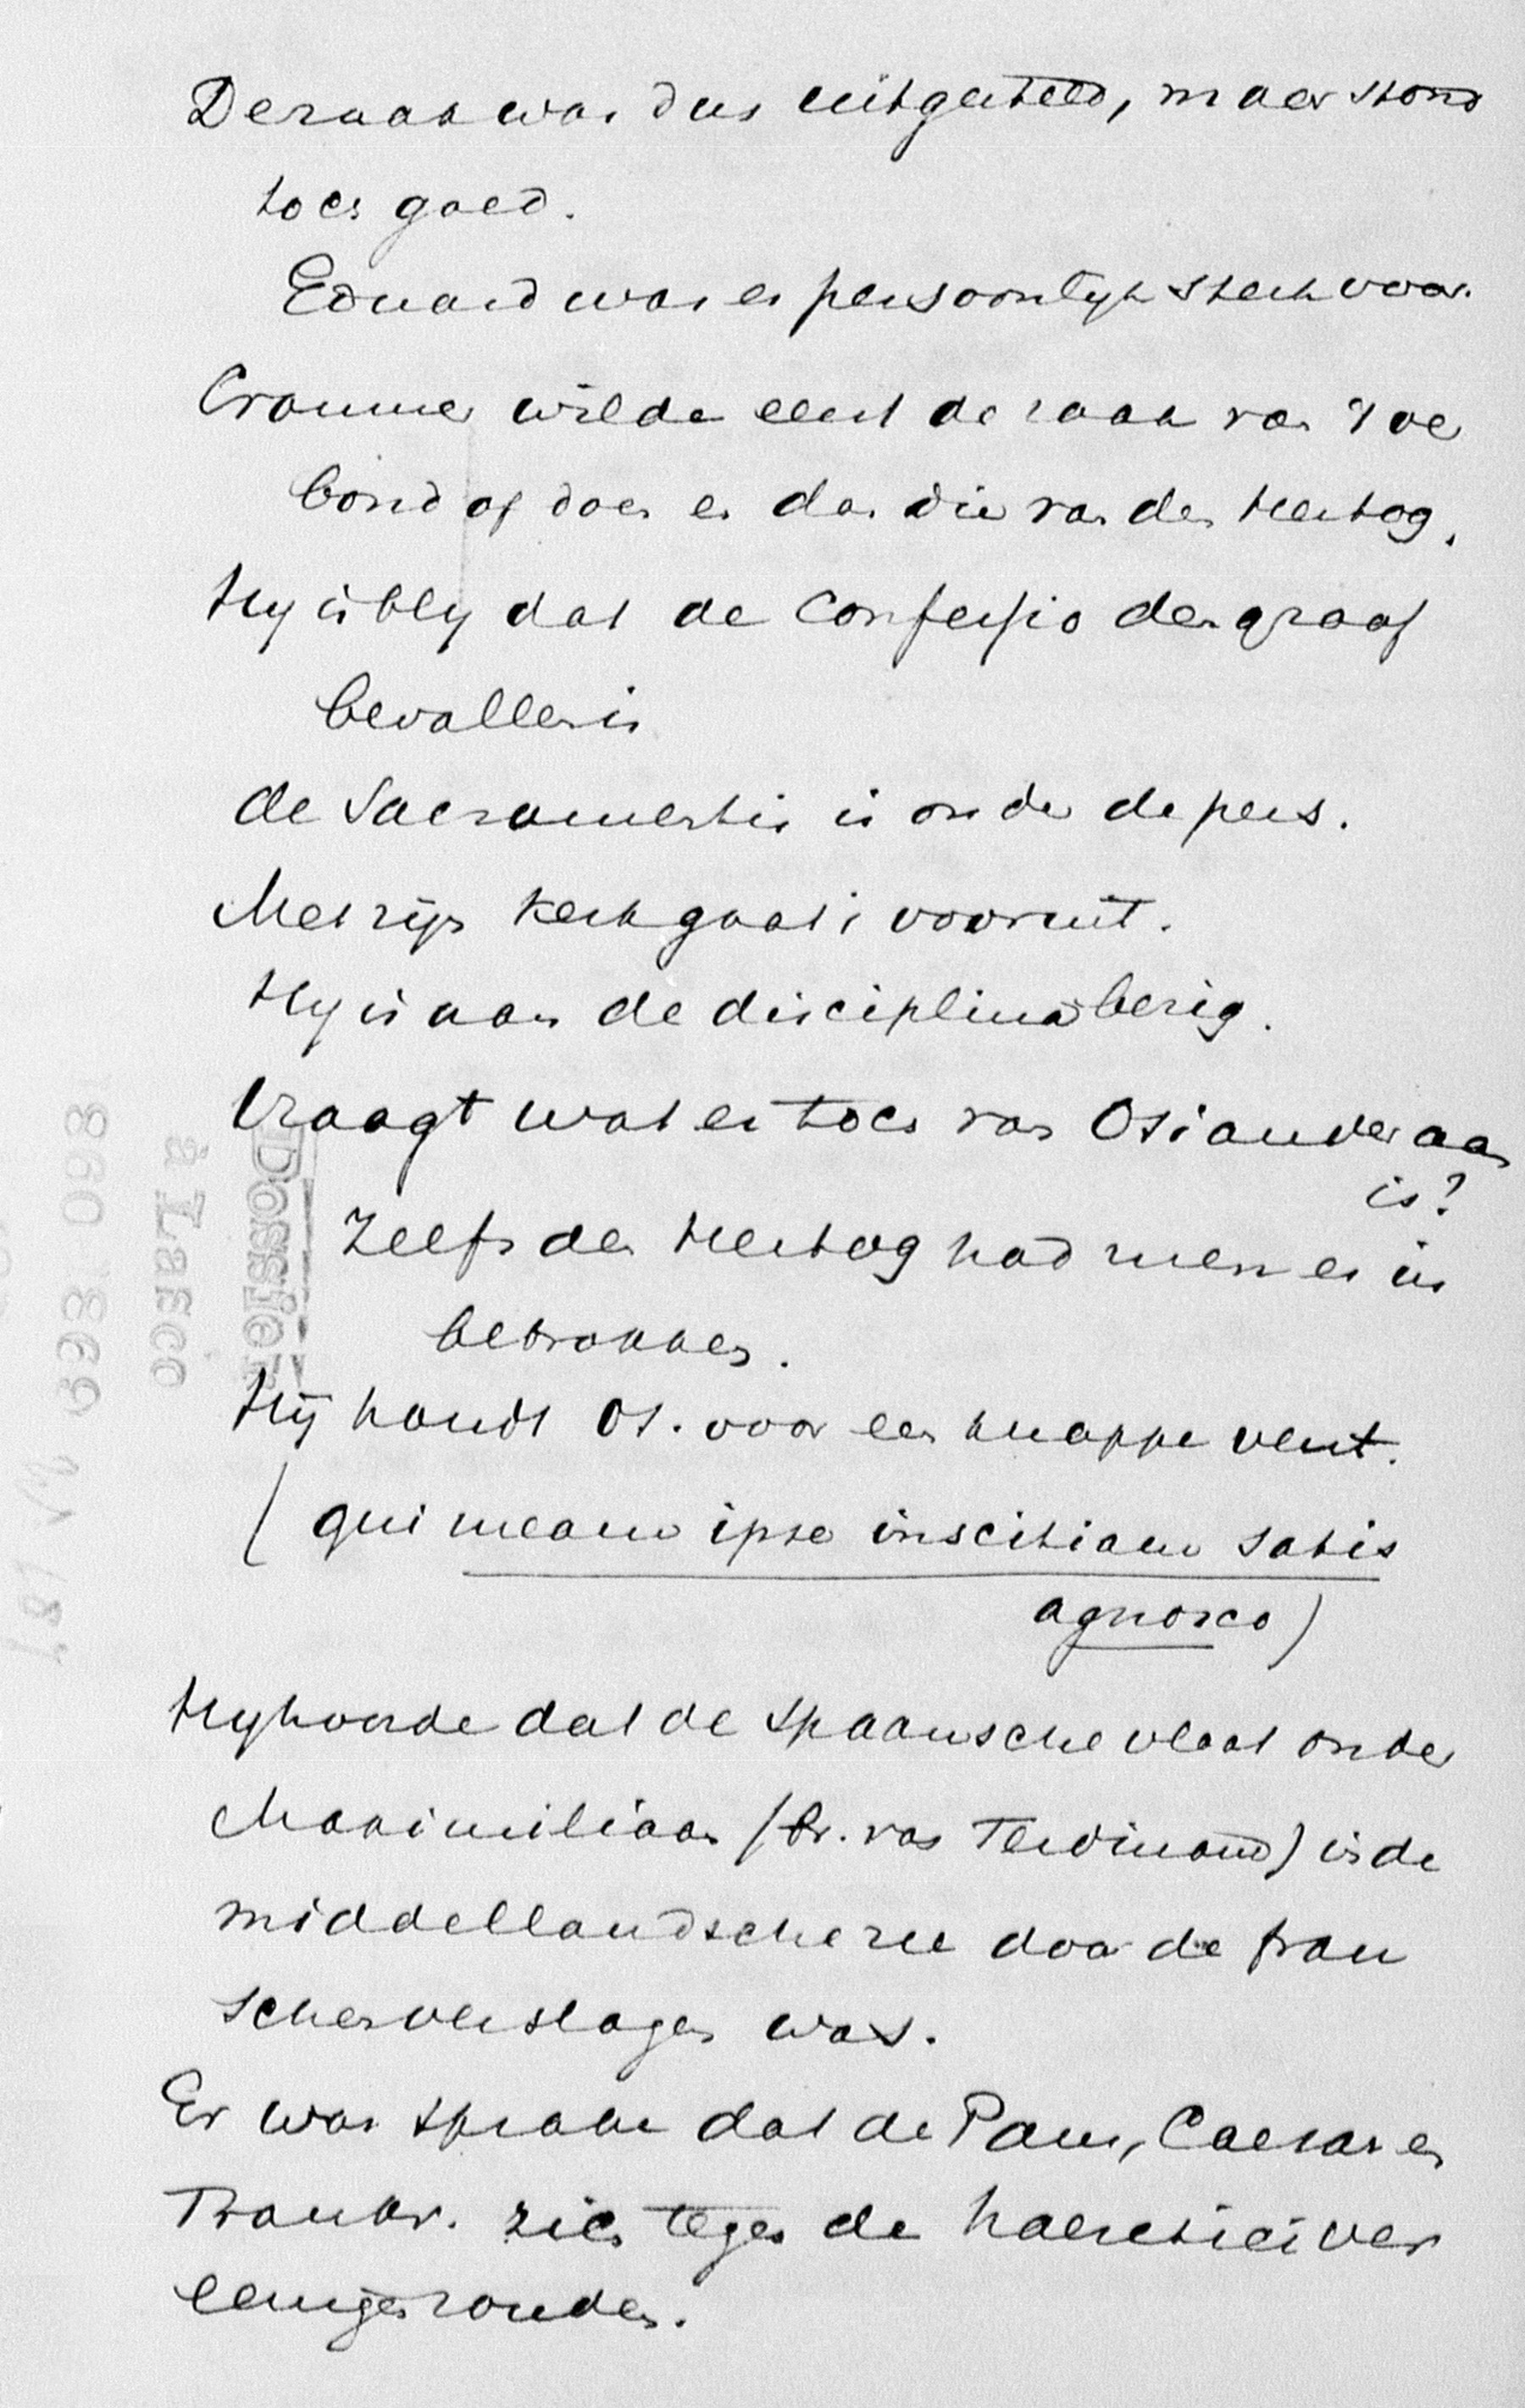 De zaak was dus uitgesteld, maar stond
toch goed.
Eduard was er persoonlijk sterk voor.
Cranmer wilde eerst de zaak van 't ver
bond af doen en dan die van den Hertog.
Hy is bly dat de Confessio den graaf
bevallen is
de Sacramentis is onder de pers.
Met zijn Kerk gaat 't vooruit.
Hy is aan de disciplina bezig.
Vraagt wat er toch van Osiander aan
is?
Zelfs den Hertog had men er in
betrokken.
Hij houdt Os. voor een knappe vent.
(qui meam ipse inscitiam satis
agnosco)
Hy hoorde dat de Spaansche vloot onder
Maximiliaan (br. van Ferdinand) in de
middellandsche zee door de fran
schen verslagen was.
Er was sprake dat de Paus, Caesar en
Frankr. zich tegen de haeretici ver
eenigen zouden.
Dossier
à Lasco